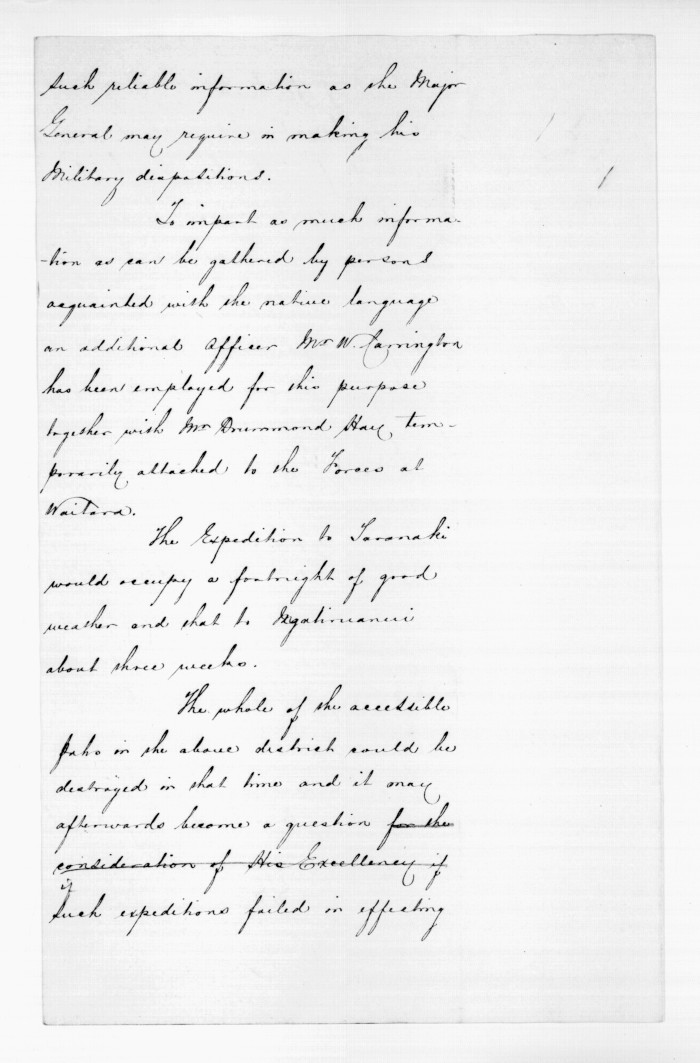 such reliable information as the Major
General may require in making his
Military dispositions.
To impart as much informa-
-tion as can be gathered by persons
acquainted with the native language
an additional Officer Mr W. Carrington
has been employed for this purpose
together with Mr Drummond Hay tem-
porarily attached to the Forces at
Waitara.
The Expedition to Taranaki
would occupy a fortnight of good
weather and that to Ngatiruanui
about three weeks.
The whole of the accessible
Pahs in the above district could be
destroyed in that time and it may
afterwards become a question for the
consideration of His Excellency if
if
such expeditions failed in effecting